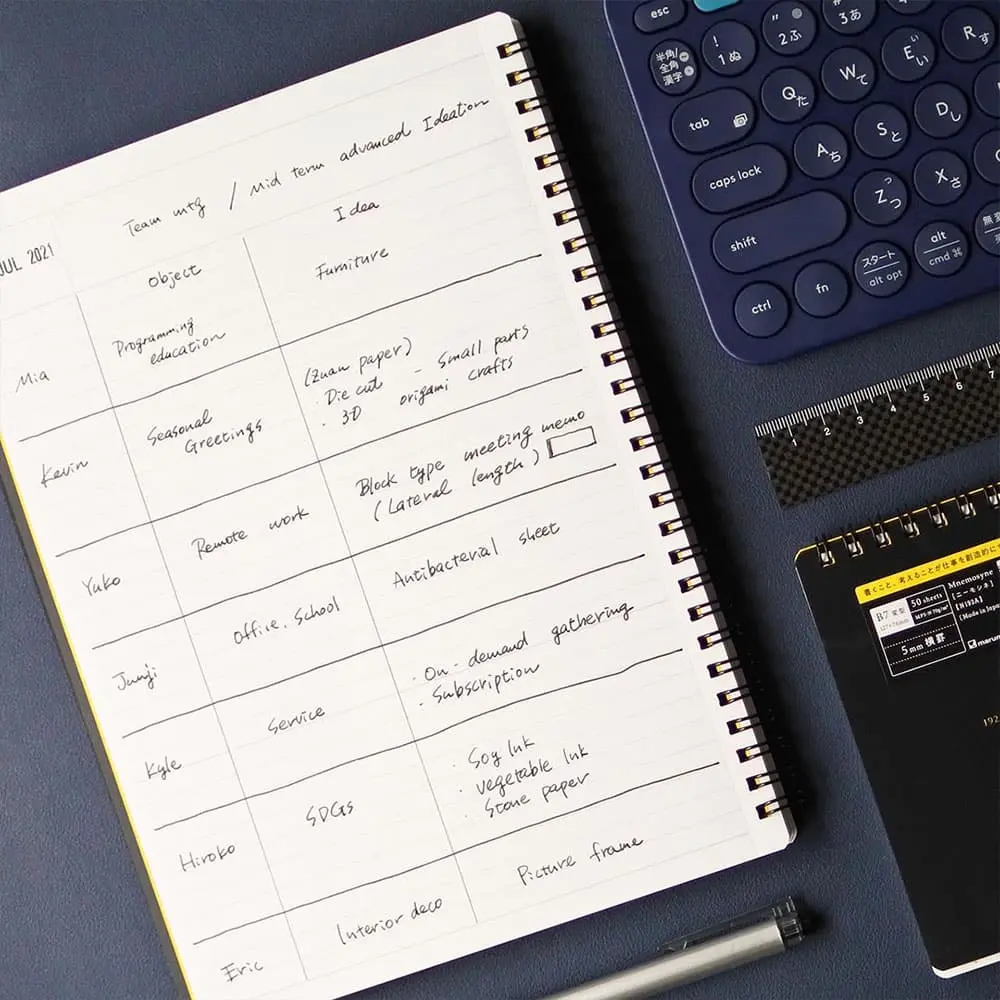 Team mtg / Mid term advanced Ideation
JUL 2021
Object
Idea
Mia
Programming
education
Furniture
Kevin
Seasonal
Greetings
(Zuan paper)
· Die cut - Small parts
· 3D origami crafts
Yuko
Remote work
Block type meeting memo
(Lateral length)
Junji
Office, School
Antibacterial sheet
Kyle
Service
· On-demand gathering
· Subscription
Hiroko
SDGs
· Soy Ink
· vegetable Ink
· Stone paper
Eric
Interior deco
Picture frame
esc
半角/
全角
漢字
! 1 ぬ
" 2 ふ
3 あ
tab
Q た
W て
E い
R す
caps lock
A ち
S と
D し
shift
Z つ
X さ
ctrl
fn
スタート
alt opt
alt
cmd ⌘
1 2 3 4 5 6 7
書くこと、考えることが仕事を創造的に
B7 変型
50 sheets
5 mm 横罫
Mnemosyne
[ニーモシネ]
[N193A]
192